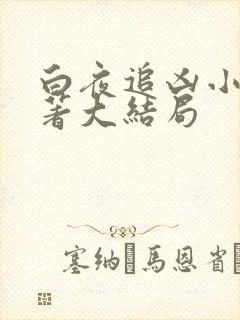 白夜追凶小
著大結局
塞纳馬恩省